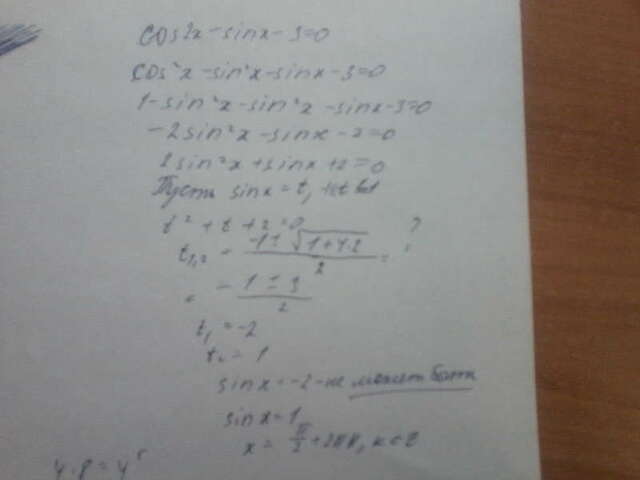 cos2x - sinx - 3 = 0
cos²x - sin²x - sinx - 3 = 0
1 - sin²x - sin²x - sinx - 3 = 0
-2sin²x - sinx - 2 = 0
2sin²x + sinx + 2 = 0
Пусть sinx = t,
t² + t + 2 = 0
t₁,₂ = (-1 ± √(1+4·2))/2 = ?
= (-1 ± 3)/2
t₁ = -2
t₂ = 1
sinx = -2 - не может быть
sinx = 1
x = π/2 + 2πk, k ∈ Z